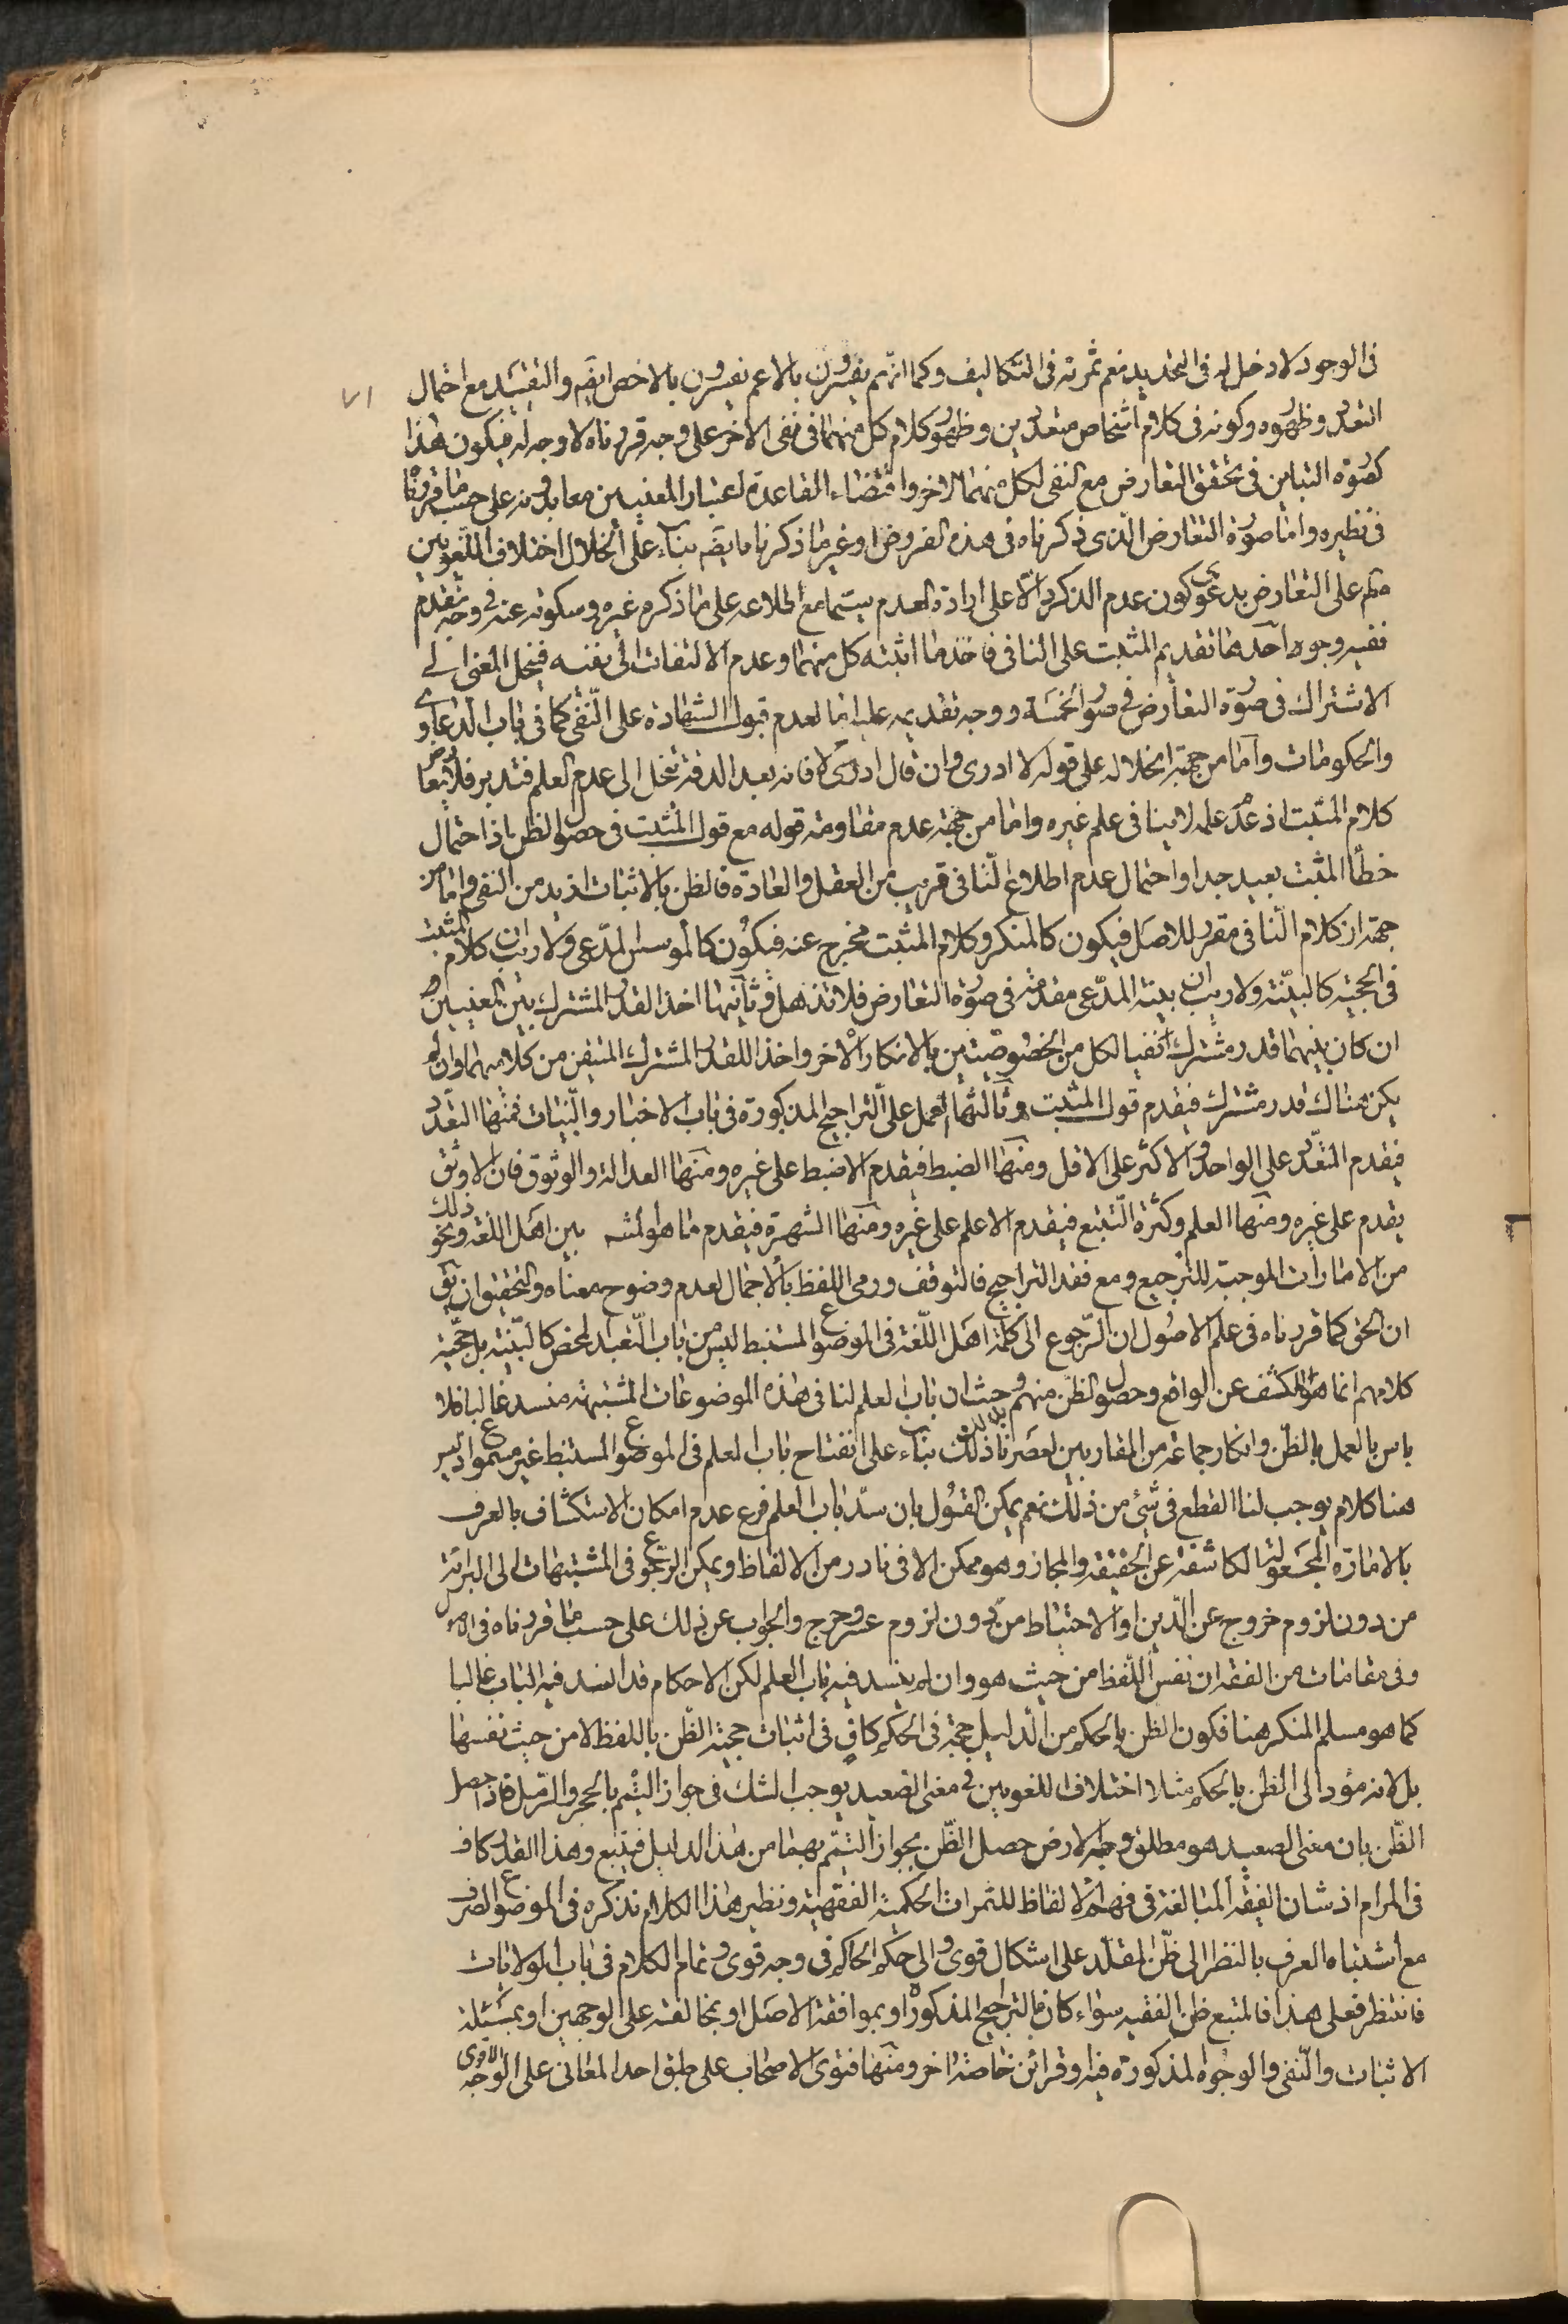 فى الوجود لا دخل له فى التحديد نعم ثمرته فى التكاليف وكما انهم يفسرون بالاعم يفسرون بالاخص ايضه والتفسير مع احتمال
٧١
التعدد وظهوره وكونه فى كلام اشخاص متعددين وظهور كلام كل منهما فى نفى الاخر على وجه قررناه لا وجه له فيكون هذا
كصورة التباين فى تحقق التعارض مع النفى لكل منهما الاخر واقتضاء القاعدة اعتبار المعنيين معا بدونه على حسب ما قررنا
فى نظيره واما صورة التعارض الذى ذكرناه فى هذه الفروض او غير ما ذكرنا ايضه بناء على انحلال اختلاف اللغويين
كلهم على التعارض بدعوى كون عدم الذكر دالا على ارادة العدم سيما مع اطلاعه على ما ذكره غيره وسكوته عنه فى وجه تقدم
ففيه وجوه احدها تقديم المثبت على النافى فاخذ ما اثبته كل منهما وعدم الالتفات الى نفيه فينحل المعنى الى
الاشتراك فى صورة التعارض فى صور الخمسة ووجه تقديمه عليه اما لعدم قبول الشهادة على النفى كما فى باب الدعاوى
والحكومات واما من جهة انحلاله على قوله لا ادرى وان قال ادرى لا فانه بعد الدقة ينحل الى عدم العلم فتدبر فلا يعارض
كلام المثبت اذ عدم علمه لا ينافى علم غيره واما من جهة عدم مقاومة قوله مع قول المثبت فى حصول الظن اذ احتمال
خطأ المثبت بعيد جدا واحتمال عدم اطلاع النافى قريب من العقل والعادة فالظن بالاثبات ازيد من النفى واما من
جهة ان كلام النافى مقرر للاصل فيكون كالمنكر وكلام المثبت مخرج عنه فيكون كالموسس المدعى ولا ريب ان كلام المثبت
فى الحجية كالبينة ولا ريب ان بينة المدعى مقدمة فى صورة التعارض فلا تذهل وثانيها اخذ القدر المشترك بين المعنيين
ان كان بينهما قدر مشترك نفيا لكل من الخصوصيتين بالانكار الاخر واخذا للقدر المشترك المتيقن من كلامهما وان لم
يكن هناك قدر مشترك فيقدم قول المثبت وثالثها العمل على التراجيح المذكورة فى باب الاخبار والبينات فمنها التعدد
فيقدم المتعدد على الواحد والاكثر على الاقل ومنها الضبط فيقدم الاضبط على غيره ومنها العدالة والوثوق فان الاوثق
يقدم على غيره ومنها العلم وكثرة التتبع فيقدم الاعلم على غيره ومنها الشهرة فيقدم ما هو المشه بين اهل اللغة ونحو ذلك
من الامارات الموجبة للترجيح ومع فقد التراجيح فالتوقف ورمى اللفظ بالاجمال لعدم وضوح معناه والتحقيق ان يق
ان الحق كما قررناه فى علم الاصول ان الرجوع الى كلمة اهل اللغة فى الموضوع المستنبط ليس من باب التعبد المحض كالبينة بل حجية
كلامهم انما هو للكشف عن الواقع وحصول الظن منهم وحيث ان باب العلم لنا فى هذه الموضوعات المشتبهة منسد غالبا فلا
باس بالعمل بالظن وانكار جماعة من المقاربين لعصرنا ذلك بناء على انفتاح باب العلم فى الموضوع المستنبط غير مسموع اذ ليس
هنا كلام يوجب لنا القطع فى شئ من ذلك نعم يمكن القول بان سد باب العلم فرع عدم امكان الاستكشاف بالعرف
بالامارة المجعولة الكاشفة عن الحقيقة والمجاز وهو ممكن الا فى نادر من الالفاظ ويمكن الرجوع فى المشتبهات الى البرائة
من دون لزوم خروج عن الدين او الاحتياط من دون لزوم عسر وحرج والجواب عن ذلك على حسب ما قررناه فى الاصول
وفى مقامات من الفقه ان نفس اللفظ من حيث هو وان لم ينسد فيه باب العلم لكن الاحكام قد انسد فيه الباب غالبا
كما هو مسلم المنكر هنا فكون الظن بالحكم من الدليل حجة فى الحكم كاف فى اثبات حجية الظن باللفظ لا من حيث نفسها
بل لانه مؤد الى الظن بالحكم مثلا اختلاف اللغويين فى معنى الصعيد يوجب الشك فى جواز التيمم بالحجر والرمل فاذا حصل
الظن بان معنى الصعيد هو مطلق وجه الارض حصل الظن بجواز التيمم بهما من هذا الدليل فيتبع وهذا القدر كاف
فى المرام اذ شان الفقيه المبالغة فى فهم الالفاظ للثمرات الحكمية الفقهية ونظير هذا الكلام نذكره فى الموضوع الصرف
مع اشتباه العرف بالنظر الى ظن المقلد على اشكال قوى والى حكم الحاكم فى وجه قوى وتمام الكلام فى باب الولايات
فانتظر فعلى هذا فالمتبع ظن الفقيه سواء كان بالتراجيح المذكورة او بموافقة الاصل او بمخالفته على الوجهين او بمسئلة
الاثبات والنفى والوجوه المذكورة فيه وقرائن خاصة اخر ومنها فتوى الاصحاب على طبق احد المعانى على الوجه الاقوى